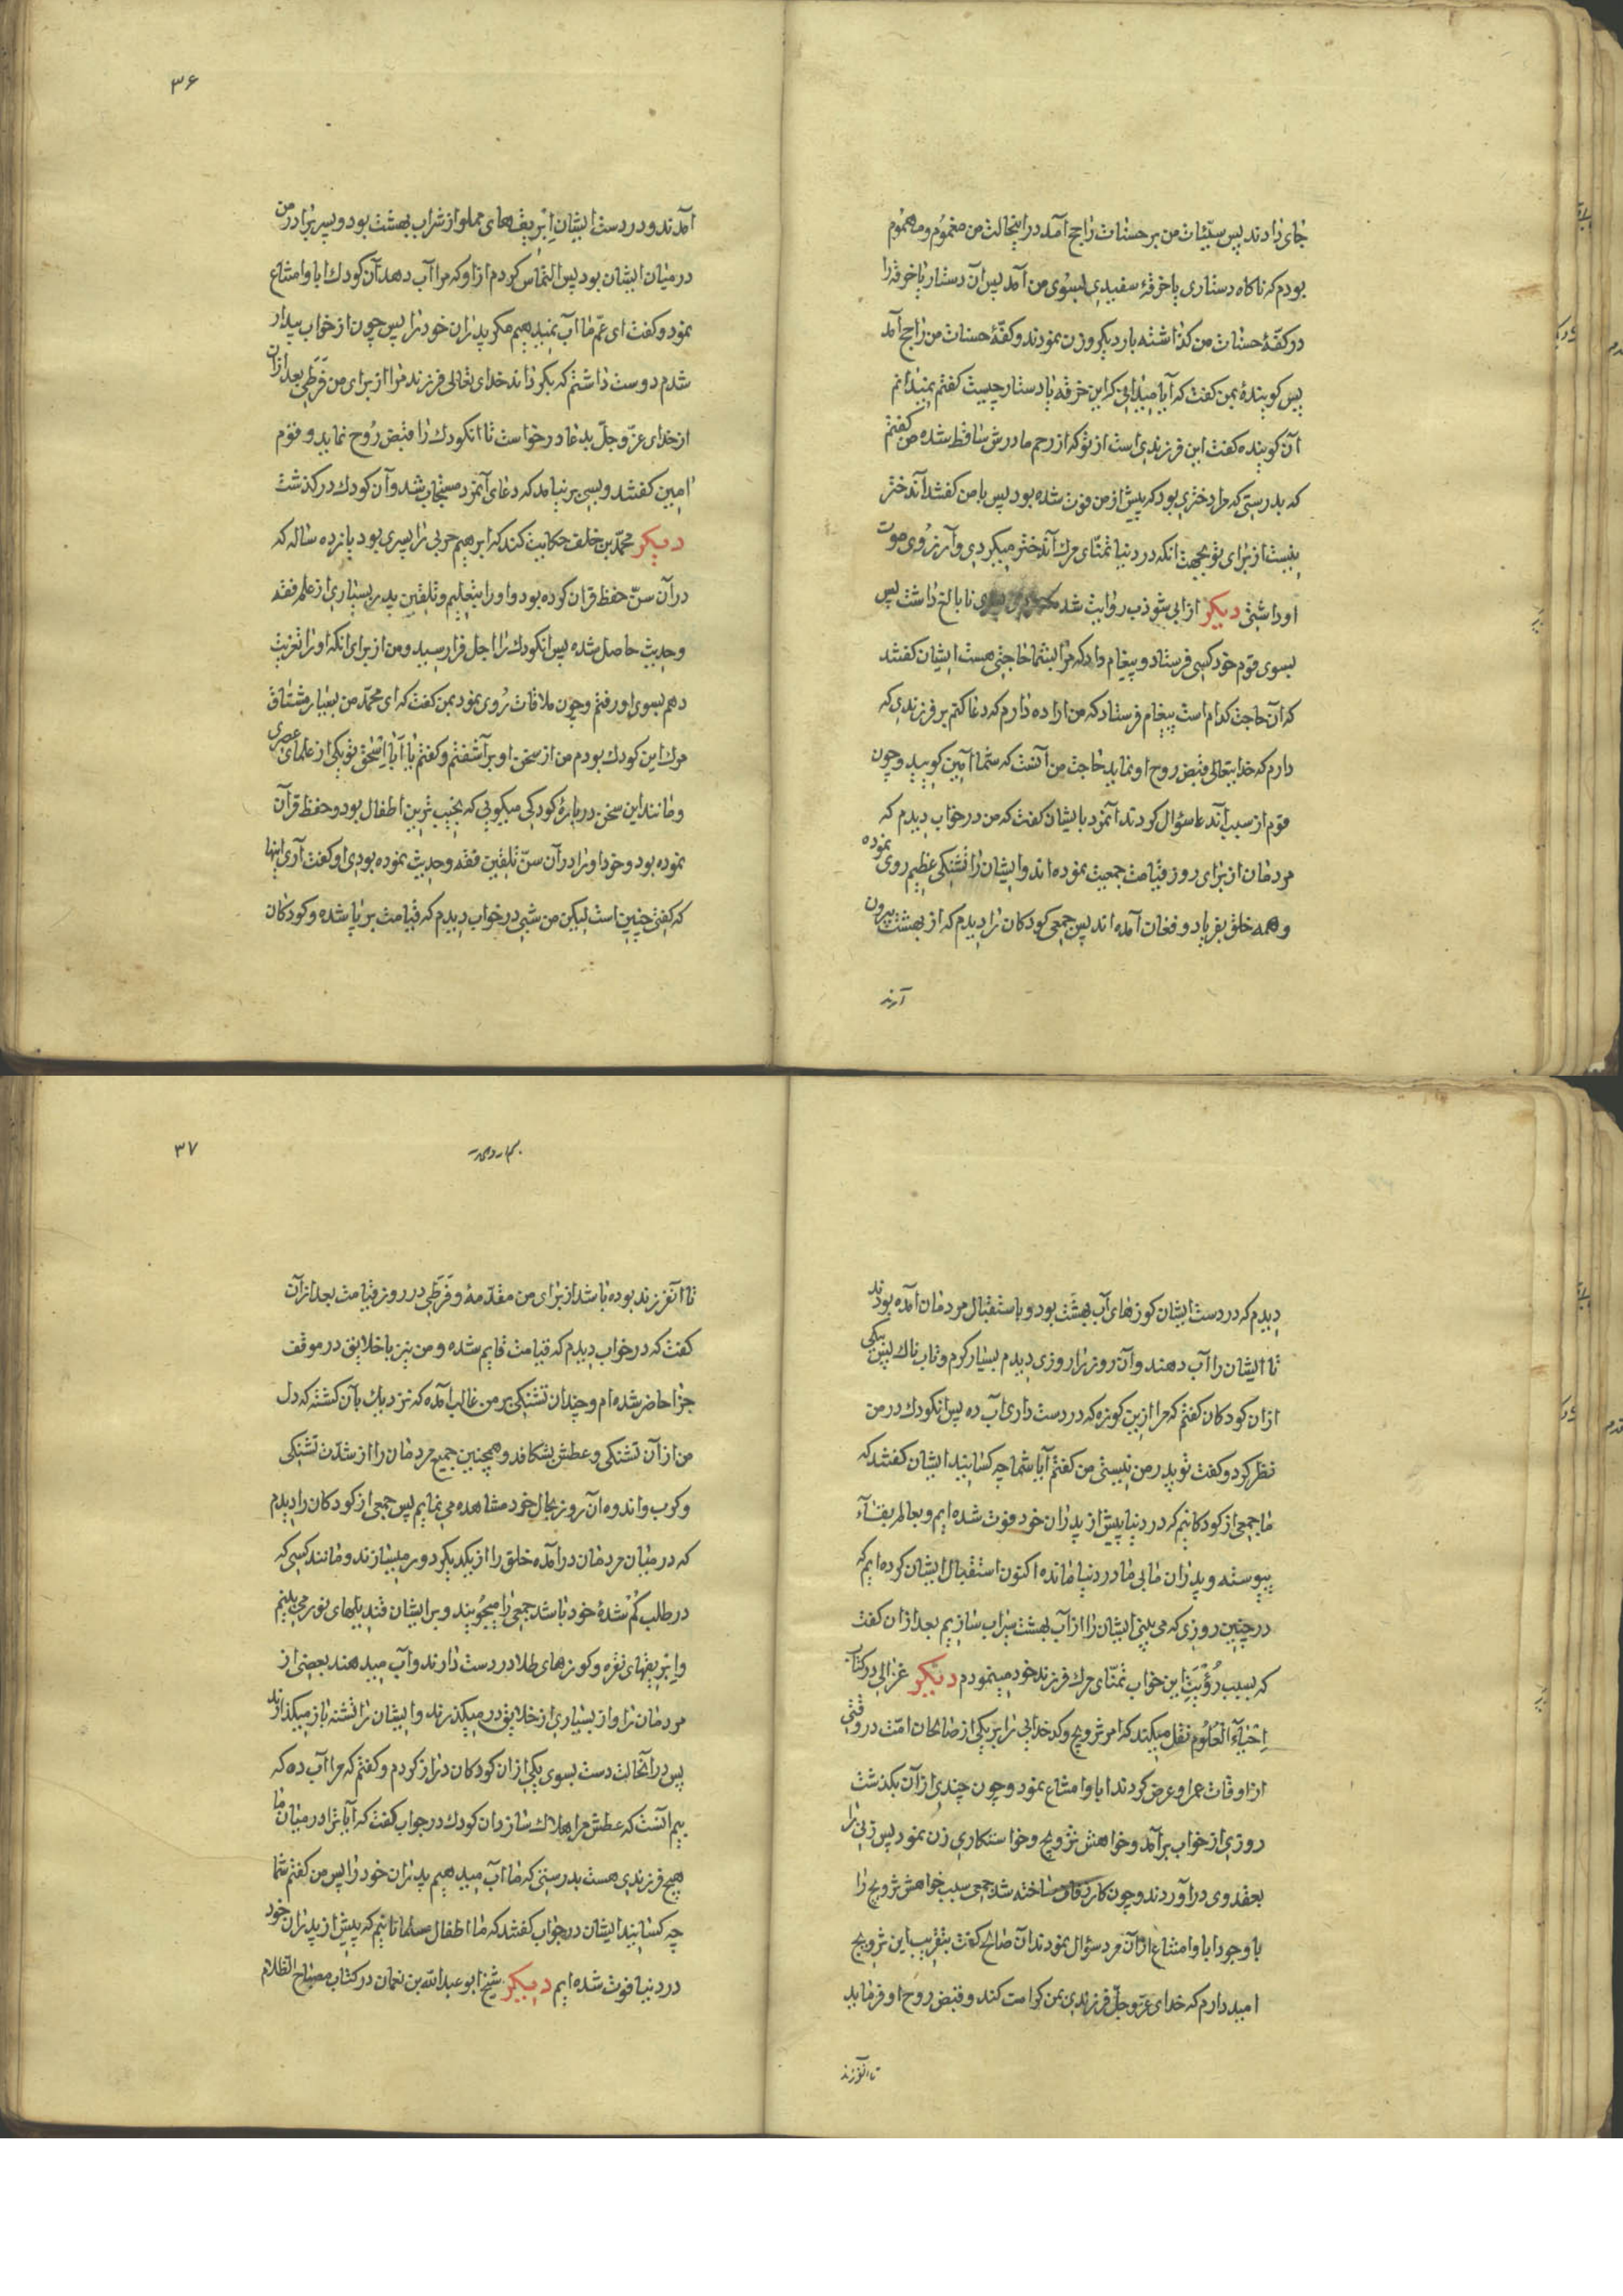 جای دادند پس سیّئات من بر حسنات راجح آمد در اینحالت من مغموم و مهموم
بودم که ناکاه دستاری یا خرقهٔ سفیدی بسوی من آمد پس آن دستار یا خرقه را
در کفّهٔ حسنات من کذاشته بار دیکر وزن نمودند و کفّهٔ حسنات من راجح آمد
پس کویندهٔ بمن کفت که آیا میدانی که این خرقه یا دستار چیست کفتم نمیدانم
آن کوینده کفت این فرزندی است از تو که از رحم مادرش ساقط شده من کفتم
که بدرستی که مرا دختری بود که پیش از من فوت شده بود پس با من کفتند آندختر
نیست از برای تو بجهت انکه در دنیا تمنّای مرك آندختر میکردی و آرزوی موت
او داشتی دیکر از ابی شوذب روایت شده نابالغ داشت پس
بسوی قوم خود کسی فرستاد و پیغام داد که مرا بشما حاجتی هست ایشان کفتند
که آن حاجت کدام است پیغام فرستاد که من اراده دارم که دعا کنم بر فرزندی که
دارم که خدایتعالی قبض روح او نماید حاجت من آنست که شما آمین کویید و چون
قوم از سبب آندعا سؤال کردند آنمرد بایشان کفت که من در خواب دیدم که
مردمان از برای روز قیامت جمعیت نموده اند و ایشان را تشنکی عظیم روی نموده
و همه خلق بفریاد و فغان آمده اند پس جمعی کودکان را دیدم که از بهشت بیرون
آمدند
۳۶
آمدند و در دست ایشان ابریقهای مملو از شراب بهشت بود و پسر برادر من
در میان ایشان بود پس التماس کردم از او که مرا آب دهد آن کودك ابا و امتناع
نمود و کفت ای عمّ ما آب نمیدهیم مکر پدران خود را پس چون از خواب بیدار
شدم دوست داشتم که بکرداند خدای تعالی فرزند مرا از برای من فَرَطی بعد از آن
از خدای عزّ و جلّ بدعا درخواست تا انکودك را قبض رُوح نماید و قوم
امین کفتند و بسی برنیامد که دعای آنمرد مستجاب شد و آن کودك درکذشت
دیکر محمّد بن خلف حکایت کند که ابرهیم حربی را پسری بود پانزده ساله که
در آن سنّ حفظ قران کرده بود و او را بتعلیم و تلقین پدر بسیاری از علم فقه
و حدیث حاصل شده پس انکودك را اجل فرا رسید و من از برای انکه او را تعزیت
دهم بسوی او رفتم و چون ملاقات رُوی نمود بمن کفت که ای محمّد من بسیار مشتاق
مرك این کودك بودم من از سخن او برآشفتم و کفتم یا ابا اسحٰق تو یکی از علمای عصری
و مانند این سخن در بارهٔ کودکی میکویی که نجیب ترین اطفال بود و حفظ قرآن
نموده بود و خود او را در آن سنّ تلقین فقه و حدیث نموده بودی او کفت آری اینها
که کفتی چنین است لیکن من شبی در خواب دیدم که قیامت برپا شده و کودکان
دیدم که در دست ایشان کوزهای آب بهشت بود و باستقبال مردمان آمده بودند
تا ایشان را آب دهند و آن روز را روزی دیدم بسیار کرم و تاب ناك پس بیکی
از ان کودکان کفتم که مرا ازین کوزه که در دست داری آب ده پس انکودك در من
نظر کرد و کفت تو پدر من نیستی من کفتم آیا شما چه کسانید ایشان کفتند که
ما جمعی از کودکانیم که در دنیا پیش از پدران خود فوت شده ایم و بعالم بقآء
پیوسته و پدران ما بی ما در دنیا مانده اکنون استقبال ایشان کرده ایم که
در چنین روزی که می بینی ایشان را از آب بهشت سیراب سازیم بعد از ان کفت
که بسبب رُؤیت این خواب تمنّای مرك فرزند خود مینمودم دیکر غزالی در کتاب
اِحْیآءَ الْعُلُوم نقل میکند که امر تزویج و کدخدایی را بر یکی از صالحان امّت در وقتی
از اوقات عمر او عرض کردند ابا و امتناع نمود و چون چندی از آن بکذشت
روزی از خواب برآمد و خواهش تزویج و خواستکاری زن نمود پس زنی را
بعقد وی در آوردند و چون کار زفاف ساخته شد جمعی سبب خواهش تزویج را
با وجود ابا و امتناع از آن مرد سؤال نمودند آن صالح کفت بتقریب این تزویج
امید دارم که خدای عزّ و جلّ فرزندی بمن کرامت کند و قبض رُوح او فرماید
تا آنفرزند
۳۷
تا آنفرزند بوده باشد از برای من مقدّمه و فَرَطی در روز قیامت بعد از آن
کفت که در خواب دیدم که قیامت قایم شده و من نیز با خلایق در موقف
جزا حاضر شده ام و چندان تشنکی بر من غالب آمده که نزدیك بآن کشته که دل
من از آن تشنکی و عطش بشکافد و همچنین جمیع مردمان را از شدّت تشنکی
و کرب و اندوه آن روز بحال خود مشاهده می نمایم پس جمعی از کودکان را دیدم
که در میان مردمان در آمده خلق را از یکدیکر دور میسازند و مانند کسی که
در طلب کُم شدهٔ خود باشد جمعی را میجویند و بر ایشان قندیلهای نور می بینم
و ابریقهای نقره و کوزهای طلا در دست دارند و آب میدهند بعضی از
مردمان را و از بسیاری از خلایق در میکذرند و ایشان را تشنه باز میکذارند
پس در آنحالت دست بسوی یکی از ان کودکان دراز کردم و کفتم که مرا آب ده که
بیم آنست که عطش مرا هلاك سازد ان کودك در جواب کفت که آیا ترا در میان ما
هیچ فرزندی هست بدرستی که ما آب میدهیم پدران خود را پس من کفتم شما
چه کسانید ایشان در جواب کفتند که ما اطفال مسلمانانیم که پیش از پدران خود
در دنیا فوت شده ایم دیکر شیخ ابو عبد الله بن نعمان در کتاب مصباح الظلام